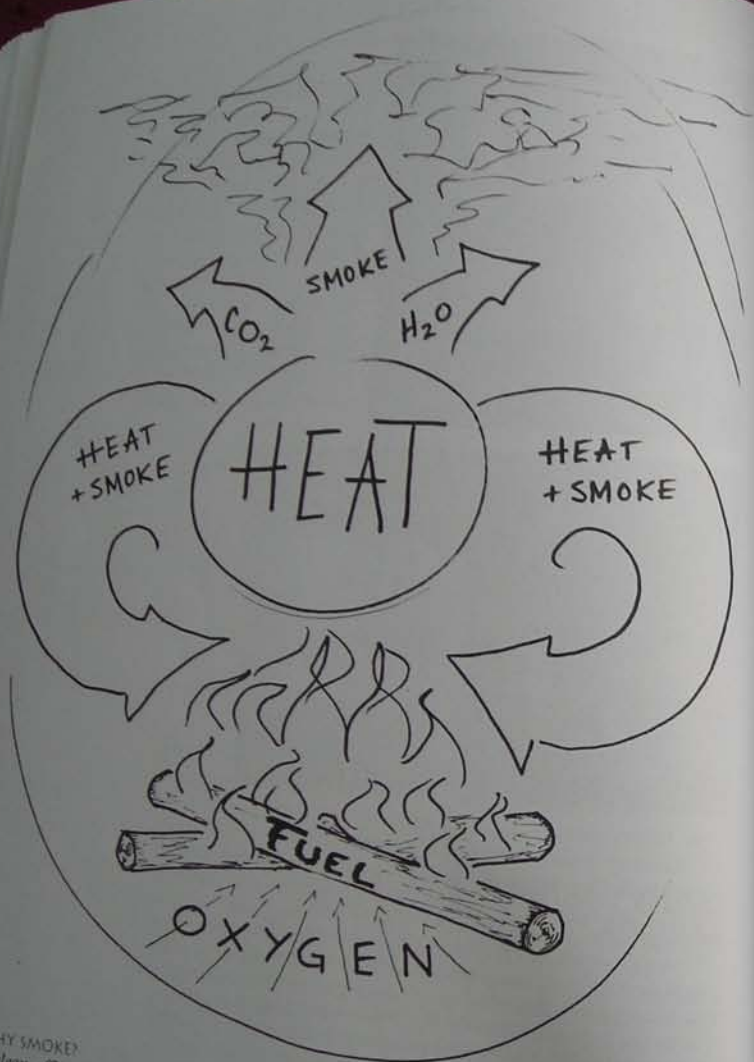 SMOKE
CO₂
H₂O
HEAT
+ SMOKE
HEAT
HEAT
+ SMOKE
FUEL
OXYGEN
SMOKE?